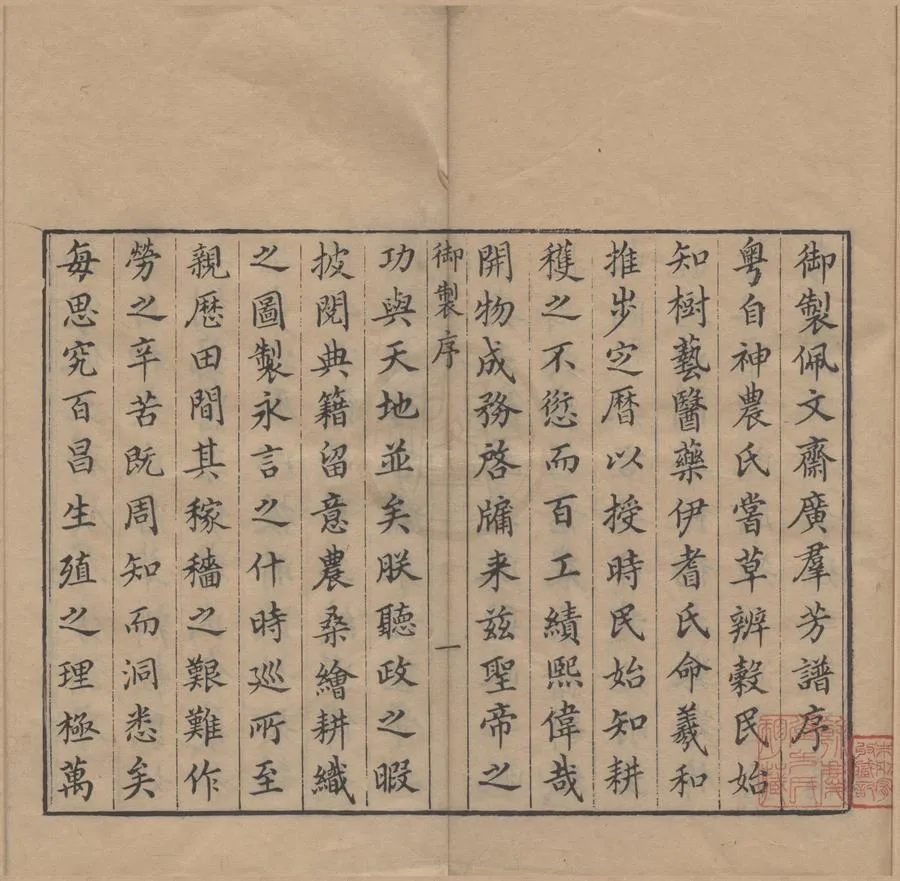 御製佩文齋廣羣芳譜序
粤自神農氏嘗草辨穀民始
知樹藝醫藥伊耆氏命羲和
推步定曆以授時民始知耕
穫之不愆而百工績熙偉哉
開物成務啓牖来兹聖帝之
御製序
一
功與天地並矣朕聽政之暇
披閱典籍留意農桑繪耕織
之圖製永言之什時廵所至
親歷田間其稼穡之艱難作
勞之辛苦既周知而洞悉矣
每思究百昌生殖之理極萬